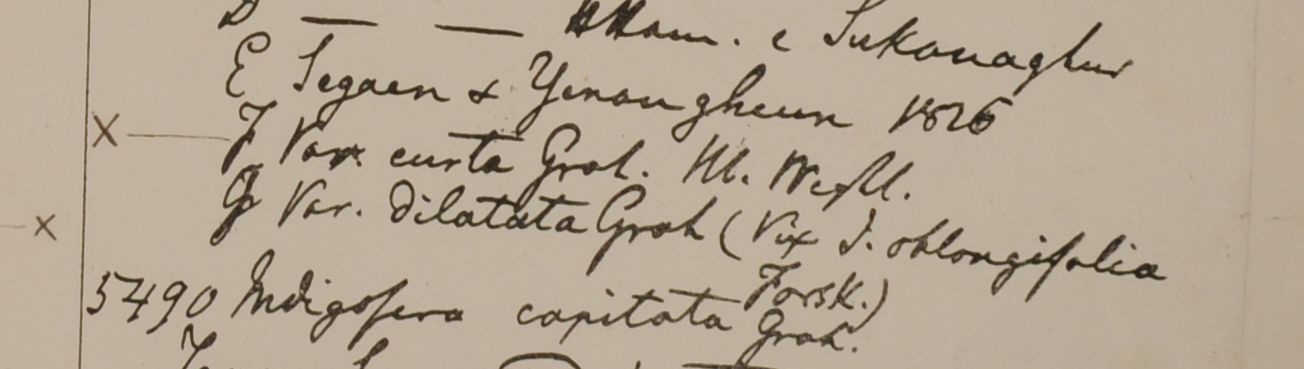 D — — Ham. e Sukanaghur
E Segaen & Yenangheun 1826
X — F Var. curta Grah. Hb. Wight.
X G Var. dilatata Grah (Vix I. oblongifolia Forsk.)
5490 Indigofera capitata Grah.